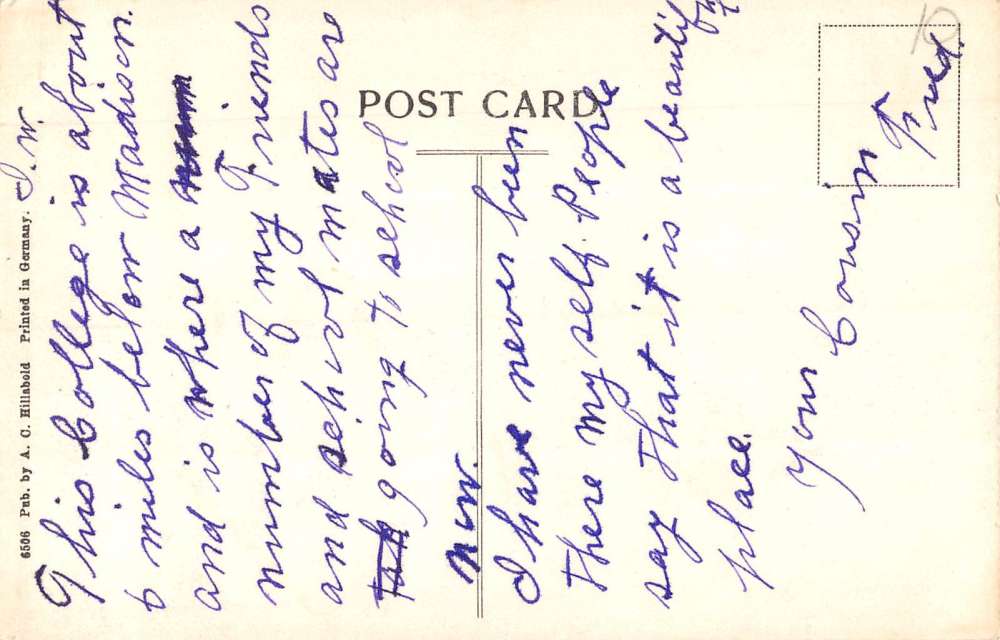 POST CARD
6506 Pub. by A. C. Hillabold Printed in Germany.
I. W.
This College is about
6 miles below Madison.
and is where a
number of my Friends
and school mates are
going to school
now.
I have never been
There my self. People
say That it is a beautiful
place.
Your Cousin
Fred.
10